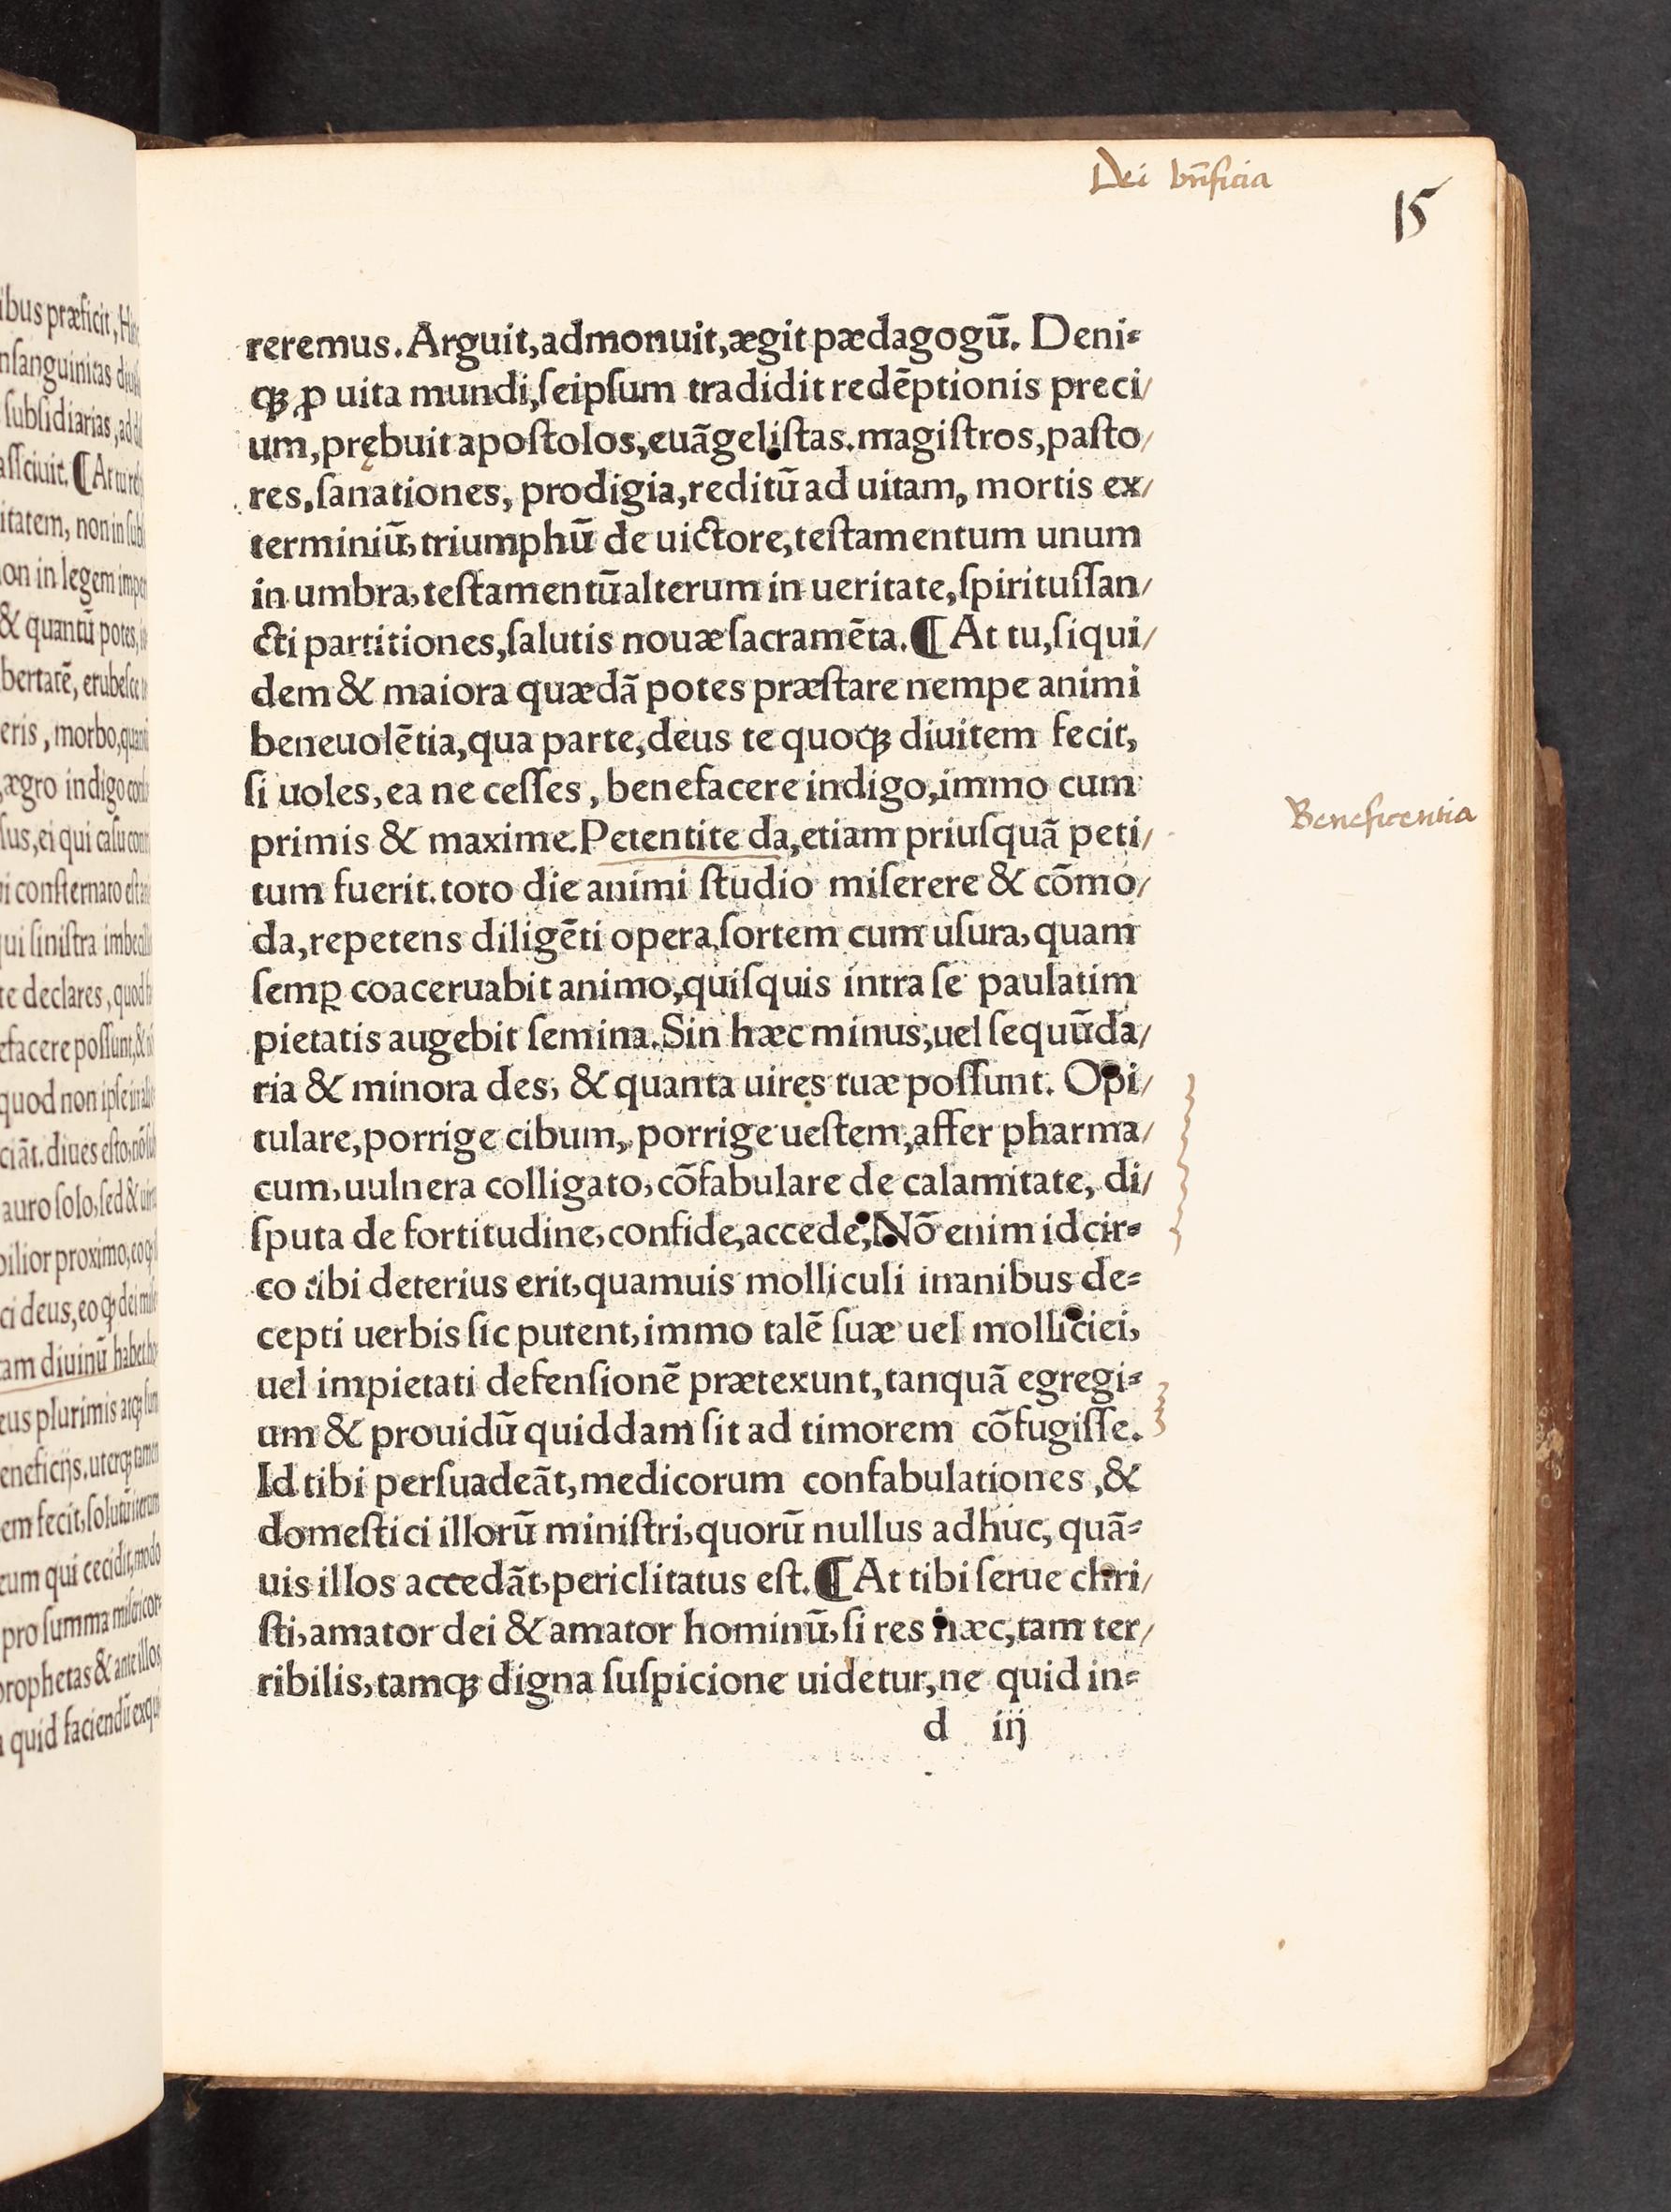 Dei bn̄ficia
15
reremus. Arguit, admonuit, ægit pædagogū. Deni⸗
qꝫ ꝓ uita mundi, ſeipſum tradidit redēptionis preci/
um, prębuit apoſtolos, euāgeliſtas. magiſtros, paſto/
res, ſanationes, prodigia, reditū ad uitam, mortis ex/
terminiū, triumphū de uictore, teſtamentum unum
in umbra, teſtamentū alterum in ueritate, ſpirituſſan/
cti partitiones, ſalutis nouæ ſacramēta. ¶ At tu, ſiqui/
dem & maiora quædā potes præſtare nempe animi
beneuolētia, qua parte, deus te quoqꝫ diuitem fecit,
ſi uoles, ea ne ceſſes, benefacere indigo, immo cum
primis & maxime. Petenti te da, etiam priuſquā peti/
tum fuerit. toto die animi ſtudio miſerere & cōmo/
da, repetens diligēti opera, ſortem cum uſura, quam
ſemꝑ coaceruabit animo, quiſquis intra ſe paulatim
pietatis augebit ſemina. Sin hæc minus, uel ſequūda/
ria & minora des, & quanta uires tuæ poſſunt. Opi/
tulare, porrige cibum, porrige ueſtem, affer pharma/
cum, uulnera colligato, cōfabulare de calamitate, di/
ſputa de fortitudine, confide, accede, Nō enim idcir⸗
co tibi deterius erit, quamuis molliculi inanibus de⸗
cepti uerbis ſic putent, immo talē ſuæ uel molliciei,
uel impietati defenſionē prætexunt, tanquā egregi⸗
um & prouidū quiddam ſit ad timorem cōfugiſſe.
Id tibi perſuadeāt, medicorum confabulationes, &
domeſtici illorū miniſtri, quorū nullus adhuc, quā⸗
uis illos accedāt, periclitatus eſt. ¶ At tibi ſerue chri/
ſti, amator dei & amator hominū, ſi res hæc, tam ter/
ribilis, tamqꝫ digna ſuſpicione uidetur, ne quid in⸗
d iij
Beneficentia